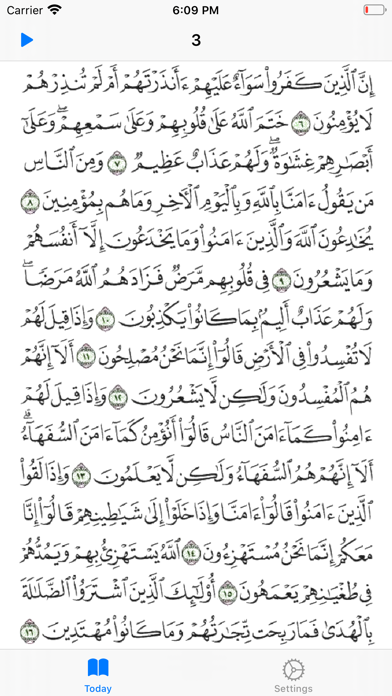 Carrier 6:09 PM
3
إِنَّ الَّذِينَ كَفَرُوا۟ سَوَآءٌ عَلَيْهِمْ ءَأَنذَرْتَهُمْ أَمْ لَمْ تُنذِرْهُمْ
لَا يُؤْمِنُونَ ٦ خَتَمَ اللَّهُ عَلَىٰ قُلُوبِهِمْ وَعَلَىٰ سَمْعِهِمْ ۖ وَعَلَىٰٓ
أَبْصَٰرِهِمْ غِشَٰوَةٌ ۖ وَلَهُمْ عَذَابٌ عَظِيمٌ ٧ وَمِنَ النَّاسِ
مَن يَقُولُ ءَامَنَّا بِاللَّهِ وَبِالْيَوْمِ الْءَاخِرِ وَمَا هُم بِمُؤْمِنِينَ ٨
يُخَٰدِعُونَ اللَّهَ وَالَّذِينَ ءَامَنُوا۟ وَمَا يَخْدَعُونَ إِلَّآ أَنفُسَهُمْ
وَمَا يَشْعُرُونَ ٩ فِى قُلُوبِهِم مَّرَضٌ فَزَادَهُمُ اللَّهُ مَرَضًا ۖ
وَلَهُمْ عَذَابٌ أَلِيمٌۢ بِمَا كَانُوا۟ يَكْذِبُونَ ١٠ وَإِذَا قِيلَ لَهُمْ
لَا تُفْسِدُوا۟ فِى الْأَرْضِ قَالُوٓا۟ إِنَّمَا نَحْنُ مُصْلِحُونَ ١١ أَلَآ إِنَّهُمْ
هُمُ الْمُفْسِدُونَ وَلَٰكِن لَّا يَشْعُرُونَ ١٢ وَإِذَا قِيلَ لَهُمْ
ءَامِنُوا۟ كَمَآ ءَامَنَ النَّاسُ قَالُوٓا۟ أَنُؤْمِنُ كَمَآ ءَامَنَ السُّفَهَآءُ ۗ
أَلَآ إِنَّهُمْ هُمُ السُّفَهَآءُ وَلَٰكِن لَّا يَعْلَمُونَ ١٣ وَإِذَا لَقُوا۟
الَّذِينَ ءَامَنُوا۟ قَالُوٓا۟ ءَامَنَّا وَإِذَا خَلَوْا۟ إِلَىٰ شَيَٰطِينِهِمْ قَالُوٓا۟ إِنَّا
مَعَكُمْ إِنَّمَا نَحْنُ مُسْتَهْزِءُونَ ١٤ اللَّهُ يَسْتَهْزِئُ بِهِمْ وَيَمُدُّهُمْ
فِى طُغْيَٰنِهِمْ يَعْمَهُونَ ١٥ أُو۟لَٰٓئِكَ الَّذِينَ اشْتَرَوُا۟ الضَّلَٰلَةَ
بِالْهُدَىٰ فَمَا رَبِحَت تِّجَٰرَتُهُمْ وَمَا كَانُوا۟ مُهْتَدِينَ ١٦
Today Settings